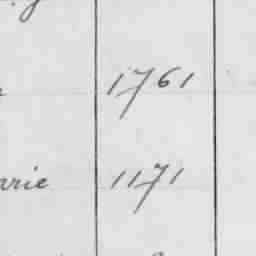 1761
arie 1171